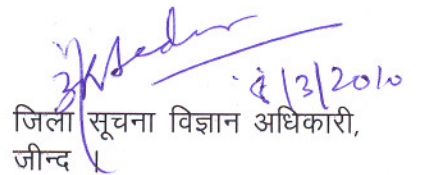 8/3/2010
जिला सूचना विज्ञान अधिकारी,
जीन्द ।